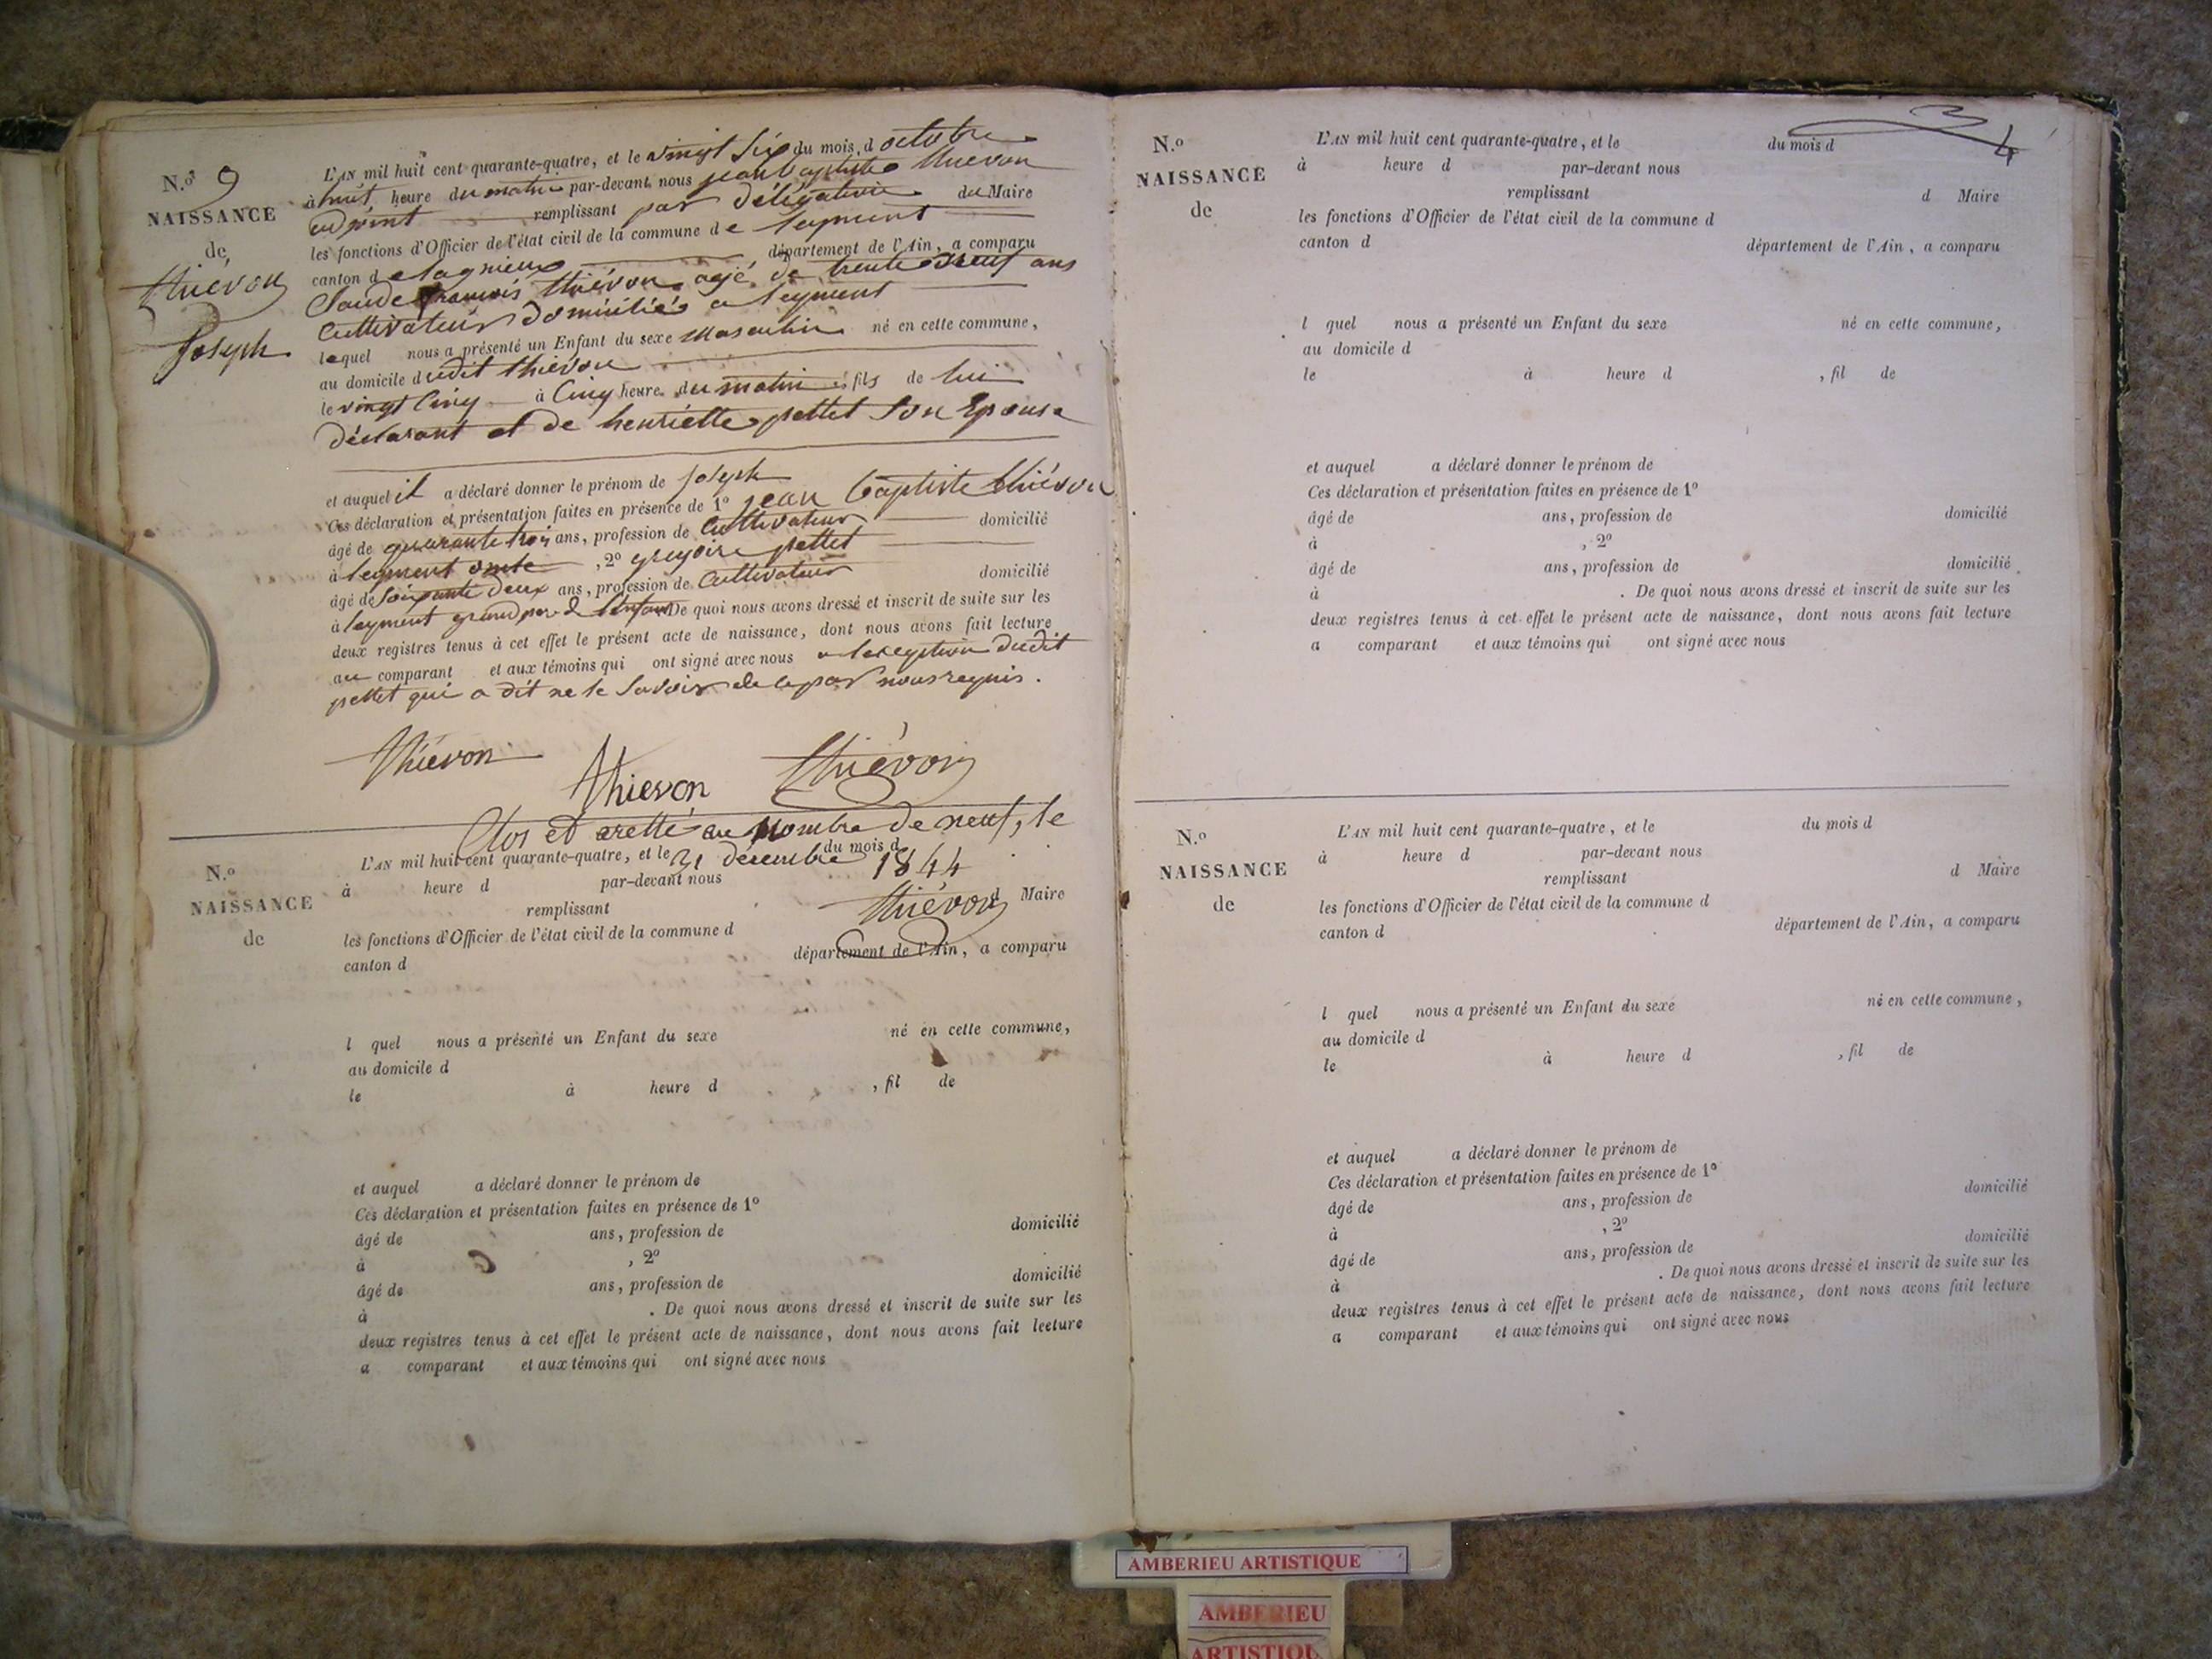 N.º 9
NAISSANCE
de
thiévon
Joseph
L'AN mil huit cent quarante-quatre, et le vingt Six du mois d octobre
à huit heure du matin par-devant nous jean baptiste thiévon
adjoint remplissant par délégation du Maire
les fonctions d'Officier de l'état civil de la commune de leyment
canton de lagnieux département de l'Ain, a comparu
françois thiévon agé de trente neuf ans
Cultivateur domicilié a leyment
lequel nous a présenté un Enfant du sexe masculin né en cette commune,
au domicile dudit thiévon
le vingt Cinq à Cinq heure du matin, fils de lui
déclarant et de henriette pettet Son Epouse
et auquel il a déclaré donner le prénom de Joseph
Ces déclaration et présentation faites en présence de 1º jean baptiste thiévon
âgé de quarante trois ans, profession de Cultivateur domicilié
à leyment oncle, 2º gregoire pettet
âgé de Soixante Deux ans, profession de Cultivateur domicilié
à leyment grand per d l'enfant De quoi nous avons dressé et inscrit de suite sur les
deux registres tenus à cet effet le présent acte de naissance, dont nous avons fait lecture
au comparant et aux témoins qui ont signé avec nous a lexception dudit
pettet qui a dit ne le Savoir de ce par nous requis.
thiévon
thievon
thiévon
Clos et aretté au Nombre de neuf, le
31 décembre 1844
thiévon
N.º
NAISSANCE
de
L'AN mil huit cent quarante-quatre, et le du mois d
à heure d par-devant nous
remplissant d Maire
les fonctions d'Officier de l'état civil de la commune d
canton d département de l'Ain, a comparu
l quel nous a présenté un Enfant du sexe né en cette commune,
au domicile d
le à heure d , fil de
et auquel a déclaré donner le prénom de
Ces déclaration et présentation faites en présence de 1º
âgé de ans, profession de domicilié
à , 2º
âgé de ans, profession de domicilié
à . De quoi nous avons dressé et inscrit de suite sur les
deux registres tenus à cet effet le présent acte de naissance, dont nous avons fait lecture
a comparant et aux témoins qui ont signé avec nous
N.º
NAISSANCE
de
L'AN mil huit cent quarante-quatre, et le du mois d
à heure d par-devant nous
remplissant d Maire
les fonctions d'Officier de l'état civil de la commune d
canton d département de l'Ain, a comparu
l quel nous a présenté un Enfant du sexe né en cette commune,
au domicile d
le à heure d , fil de
et auquel a déclaré donner le prénom de
Ces déclaration et présentation faites en présence de 1º
âgé de ans, profession de domicilié
à , 2º
âgé de ans, profession de domicilié
à . De quoi nous avons dressé et inscrit de suite sur les
deux registres tenus à cet effet le présent acte de naissance, dont nous avons fait lecture
a comparant et aux témoins qui ont signé avec nous
N.º
NAISSANCE
de
L'AN mil huit cent quarante-quatre, et le du mois d
à heure d par-devant nous
remplissant d Maire
les fonctions d'Officier de l'état civil de la commune d
canton d département de l'Ain, a comparu
l quel nous a présenté un Enfant du sexe né en cette commune,
au domicile d
le à heure d , fil de
et auquel a déclaré donner le prénom de
Ces déclaration et présentation faites en présence de 1º
âgé de ans, profession de domicilié
à , 2º
âgé de ans, profession de domicilié
à . De quoi nous avons dressé et inscrit de suite sur les
deux registres tenus à cet effet le présent acte de naissance, dont nous avons fait lecture
a comparant et aux témoins qui ont signé avec nous
AMBERIEU ARTISTIQUE
AMBERIEU